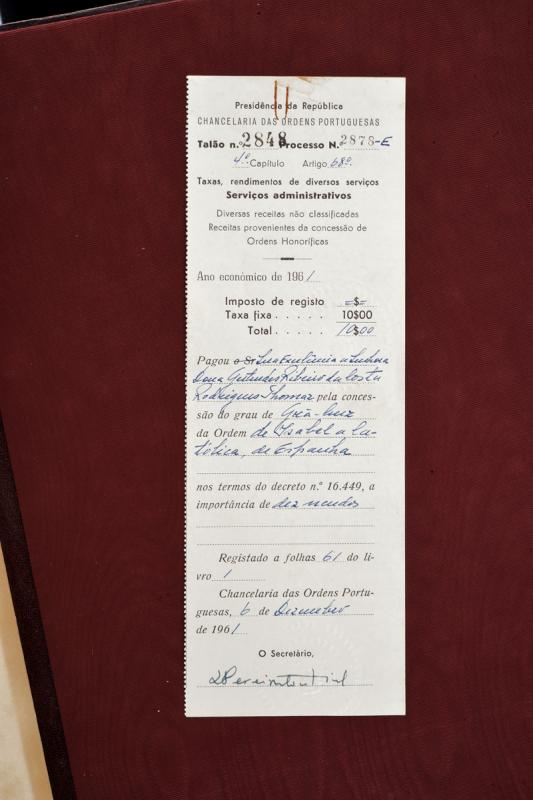 Presidência da República
CHANCELARIA DAS ORDENS PORTUGUESAS
Talão n.º 2848 Processo N.º 2878-E
4.º Capítulo Artigo 68º.
Taxas, rendimentos de diversos serviços
Serviços administrativos
Diversas receitas não classificadas
Receitas provenientes da concessão de
Ordens Honoríficas
Ano económico de 1961
Imposto de registo =$=
Taxa fixa . . . . . 10$00
Total . . . . . 10$00
Pagou o Sr Sua Excelência a Senhora
Dona Gertrudes Ribeiro da Costa
Rodrigues Thomaz pela conces-
são do grau de Grã-Cruz
da Ordem de Isabel a Ca-
tólica, de Espanha
nos termos do decreto n.º 16.449, a
importância de dez escudos
Registado a folhas 61 do li-
vro 1
Chancelaria das Ordens Portu-
guesas, 6 de Dezembro
de 1961
O Secretário,